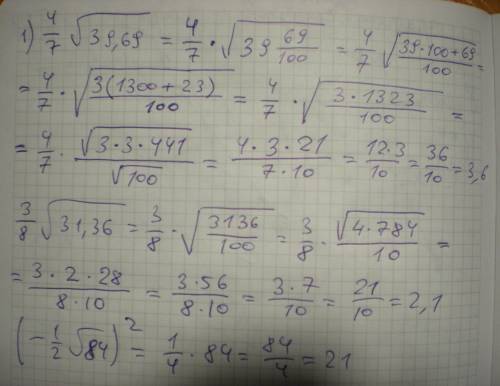 1) 4/7 √39,69 = 4/7 · √(39 69/100) = 4/7 √((39·100+69)/100) =
= 4/7 · √(3(1300+23)/100) = 4/7 · √(3·1323/100) =
= 4/7 · √(3·3·441)/√100 = (4·3·21)/(7·10) = (12·3)/10 = 36/10 = 3,6
3/8 √31,36 = 3/8 · √(3136/100) = 3/8 · √(4·784)/10 =
= (3·2·28)/(8·10) = (3·56)/(8·10) = (3·7)/10 = 21/10 = 2,1
(-1/2 √84)² = 1/4 · 84 = 84/4 = 21